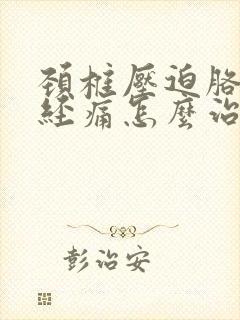 頚椎壓迫胳
經痛怎麼治
彭治安